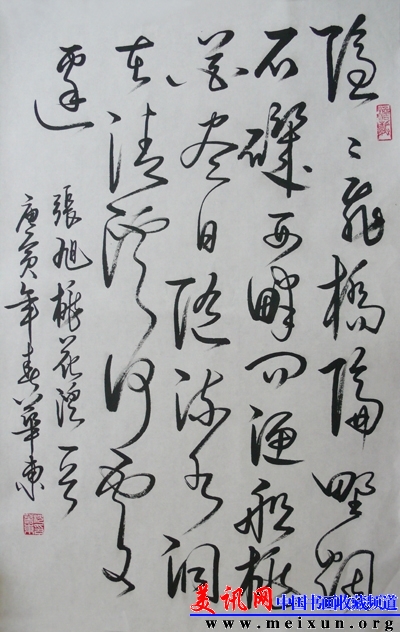 隐〻飛橋隔野烟
石磯西畔问渔船桃
花尽日随流水洞
在清谿何處
邊
張旭桃花溪一首
庚寅年春華東
美讯网 中国书画收藏频道
www.meixun.org